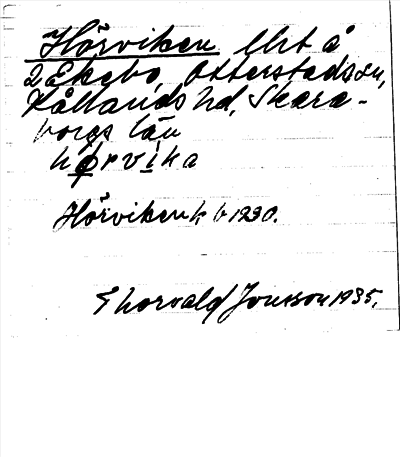 Hörviken lht å
2 Ekebo, Otterstads sn,
Kållands hd, Skara-
borgs län
hørvika
Hörviken k b 1930.
Thorvald Jonsson 1935.